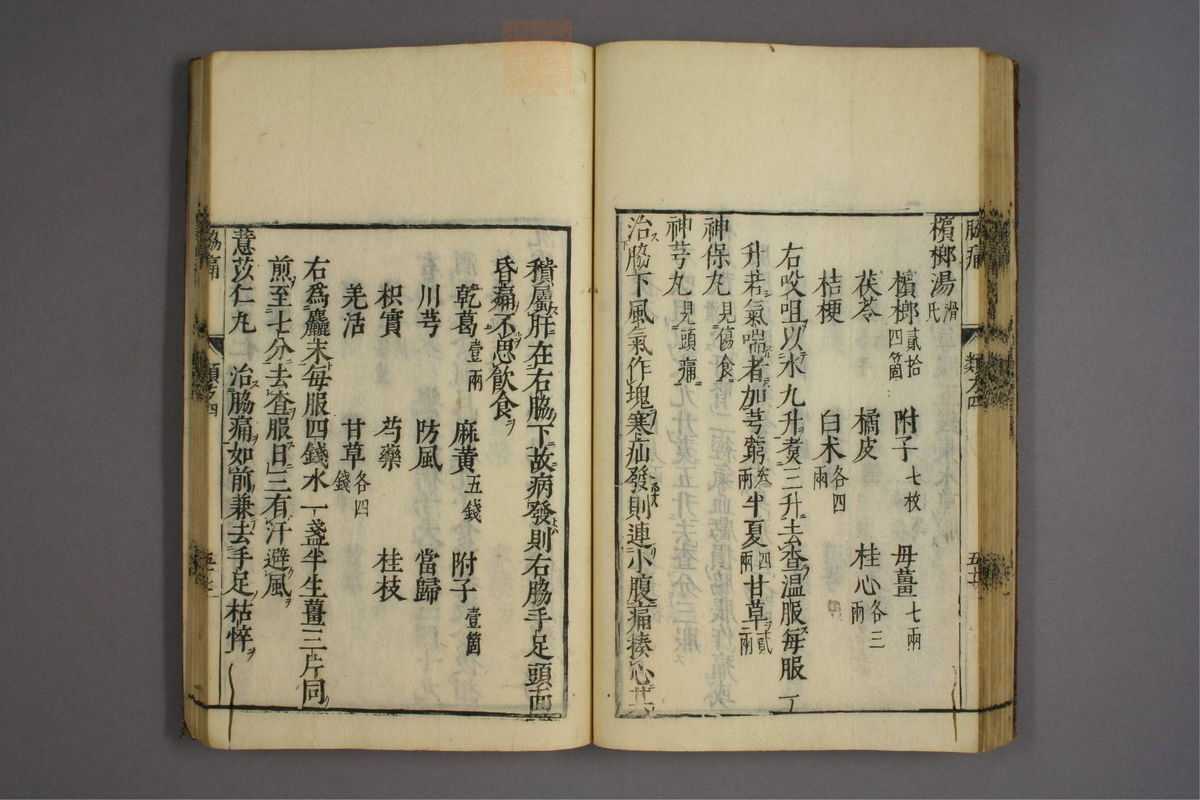 脇痛 類方四
檳榔湯 滑氏
檳榔 貳拾四箇 附子 七枚 母薑 七兩
茯苓 橘皮 桂心 各三兩
桔梗 白朮 各四兩
右㕮咀以水九升煮三升去查温服每服一
升若氣喘者加芎藭 三兩 半夏 四兩 甘草 貳兩
神保丸 見傷食
神芎丸 見頭痛
治脇下風氣作塊寒疝發則連小腹痛揍心其
積屬肝在右脇下故病發則右脇手足頭面
昏痛不思飲食
乾葛 壹兩 麻黃 五錢 附子 壹箇
川芎 防風 當歸
枳實 芍藥 桂枝
羌活 甘草 各四錢
右爲麤末每服四錢水一盞半生薑三片同
煎至七分去查服日三有汗避風
薏苡仁丸 治脇痛如前兼去手足枯悴
脇痛 類方四